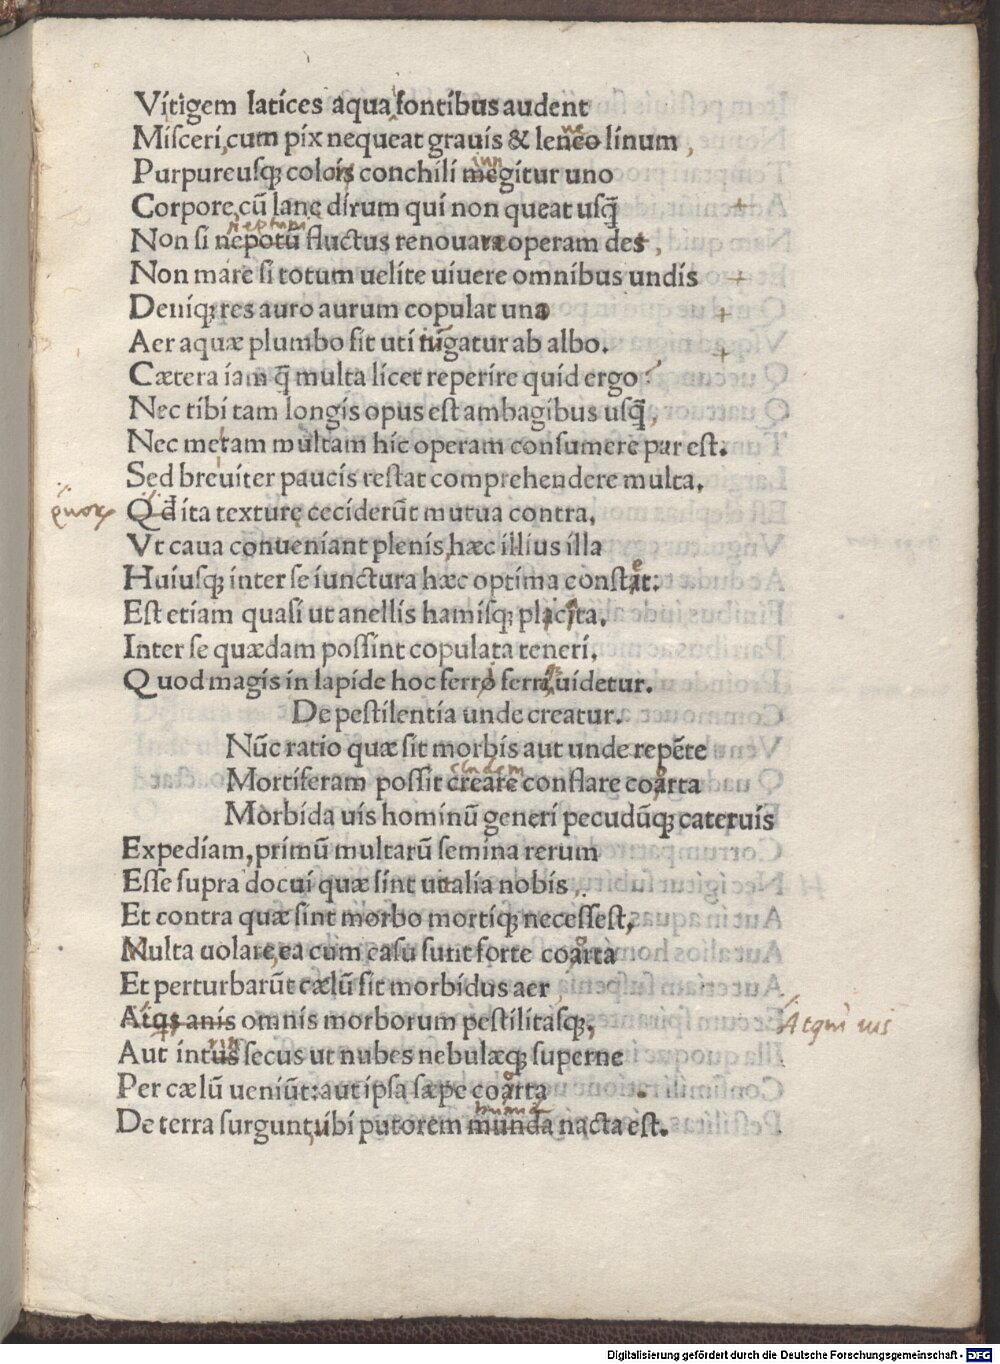 Vitigem latices aqua fontibus audent
Misceri, cum pix nequeat grauis & leneo linum,
Purpureusqȝ coloris conchili megitur uno
Corpore, cū lanę dirum qui non queat usq̄
Non si nepotū fluctus renouare operam des,
neptuni
Non mare si totum uelite uiuere omnibus undis
Deniqȝ res auro aurum copulat una
Aer aquæ plumbo fit uti iūgatur ab albo.
Cætera iam q̄ multa licet reperire quid ergo?
Nec tibi tam longis opus est ambagibus usq̄,
Nec metam multam hic operam consumere par est.
Sed breuiter paucis restat comprehendere multa.
quorȝ Qđ ita texturę ceciderūt mutua contra,
Vt caua conueniant plenis, hæc illius illa
Huiusqȝ inter se iunctura hæc optima constat:
Est etiam quasi ut anellis hamisqȝ placita,
Inter se quædam possint copulata teneri,
Quod magis in lapide hoc ferro ferri uidetur.
De pestilentia unde creatur.
Nūc ratio quæ sit morbis aut unde repēte
Mortiferam possit creare conflare coarta
cladem
Morbida uis hominū generi pecudūqȝ cateruis
Expediam, primū multarū semina rerum
Esse supra docui quæ sint uitalia nobis,
Et contra quæ sint morbo mortiqȝ necessest,
Multa uolare, ea cum casu sunt forte coarta
Et perturbarūt cælū fit morbidus aer
Atqȝ anis omnis morborum pestilitasqȝ,
Atqui uis
Aut intus secus ut nubes nebulæqȝ superne
Per cælū ueniūt: aut ipsa sæpe coarta
De terra surgunt, ubi putorem munda nacta est.
humida